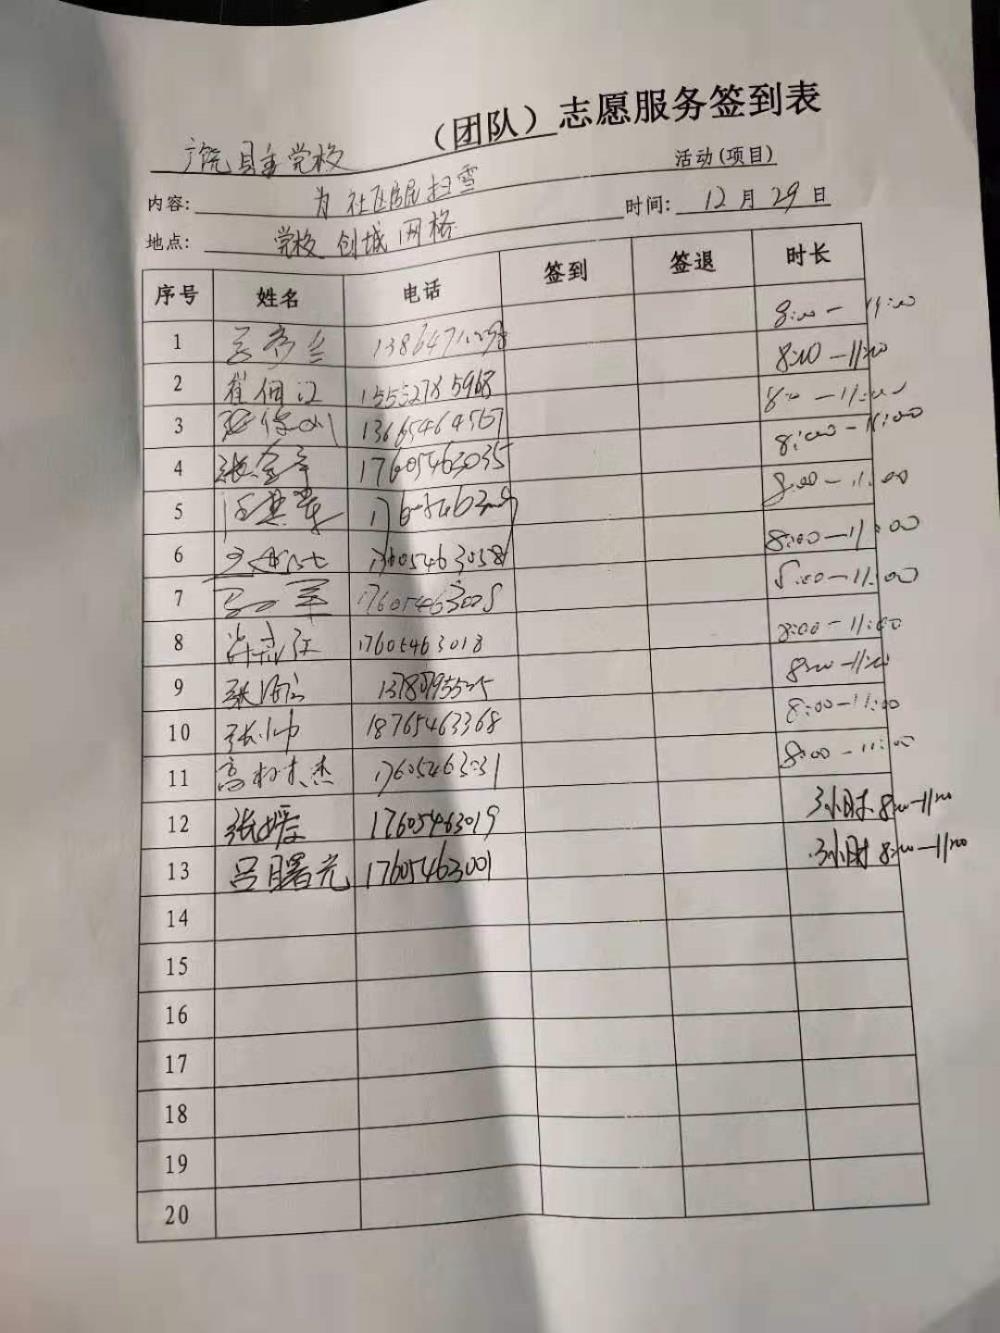 （团队）志愿服务签到表
党校
活动(项目)
内容: 为社区居民扫雪
时间: 12月29日
地点: 党校创城网格
序号 姓名 电话 签到 签退 时长
1 8:00-11:00
2 崔佃江 15552785968 8:00-11:00
3 13665464567 8:00-11:00
4 17605463035 8:00-11:00
5 8:00-11:00
6 17605463058 8:00-11:00
7 8:00-11:00
8 17605463018 8:00-11:00
9 8:00-11:00
10 张小帅 18765463368 8:00-11:00
11 高树杰 17605463031 8:00-11:00
12 张媛 17605463019 3小时 8:00-11:00
13 吕曙光 17605463001 3小时 8:00-11:00
14
15
16
17
18
19
20